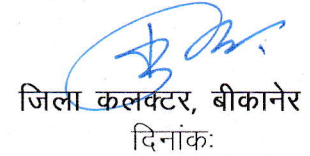 जिला कलक्टर, बीकानेर
दिनांक: